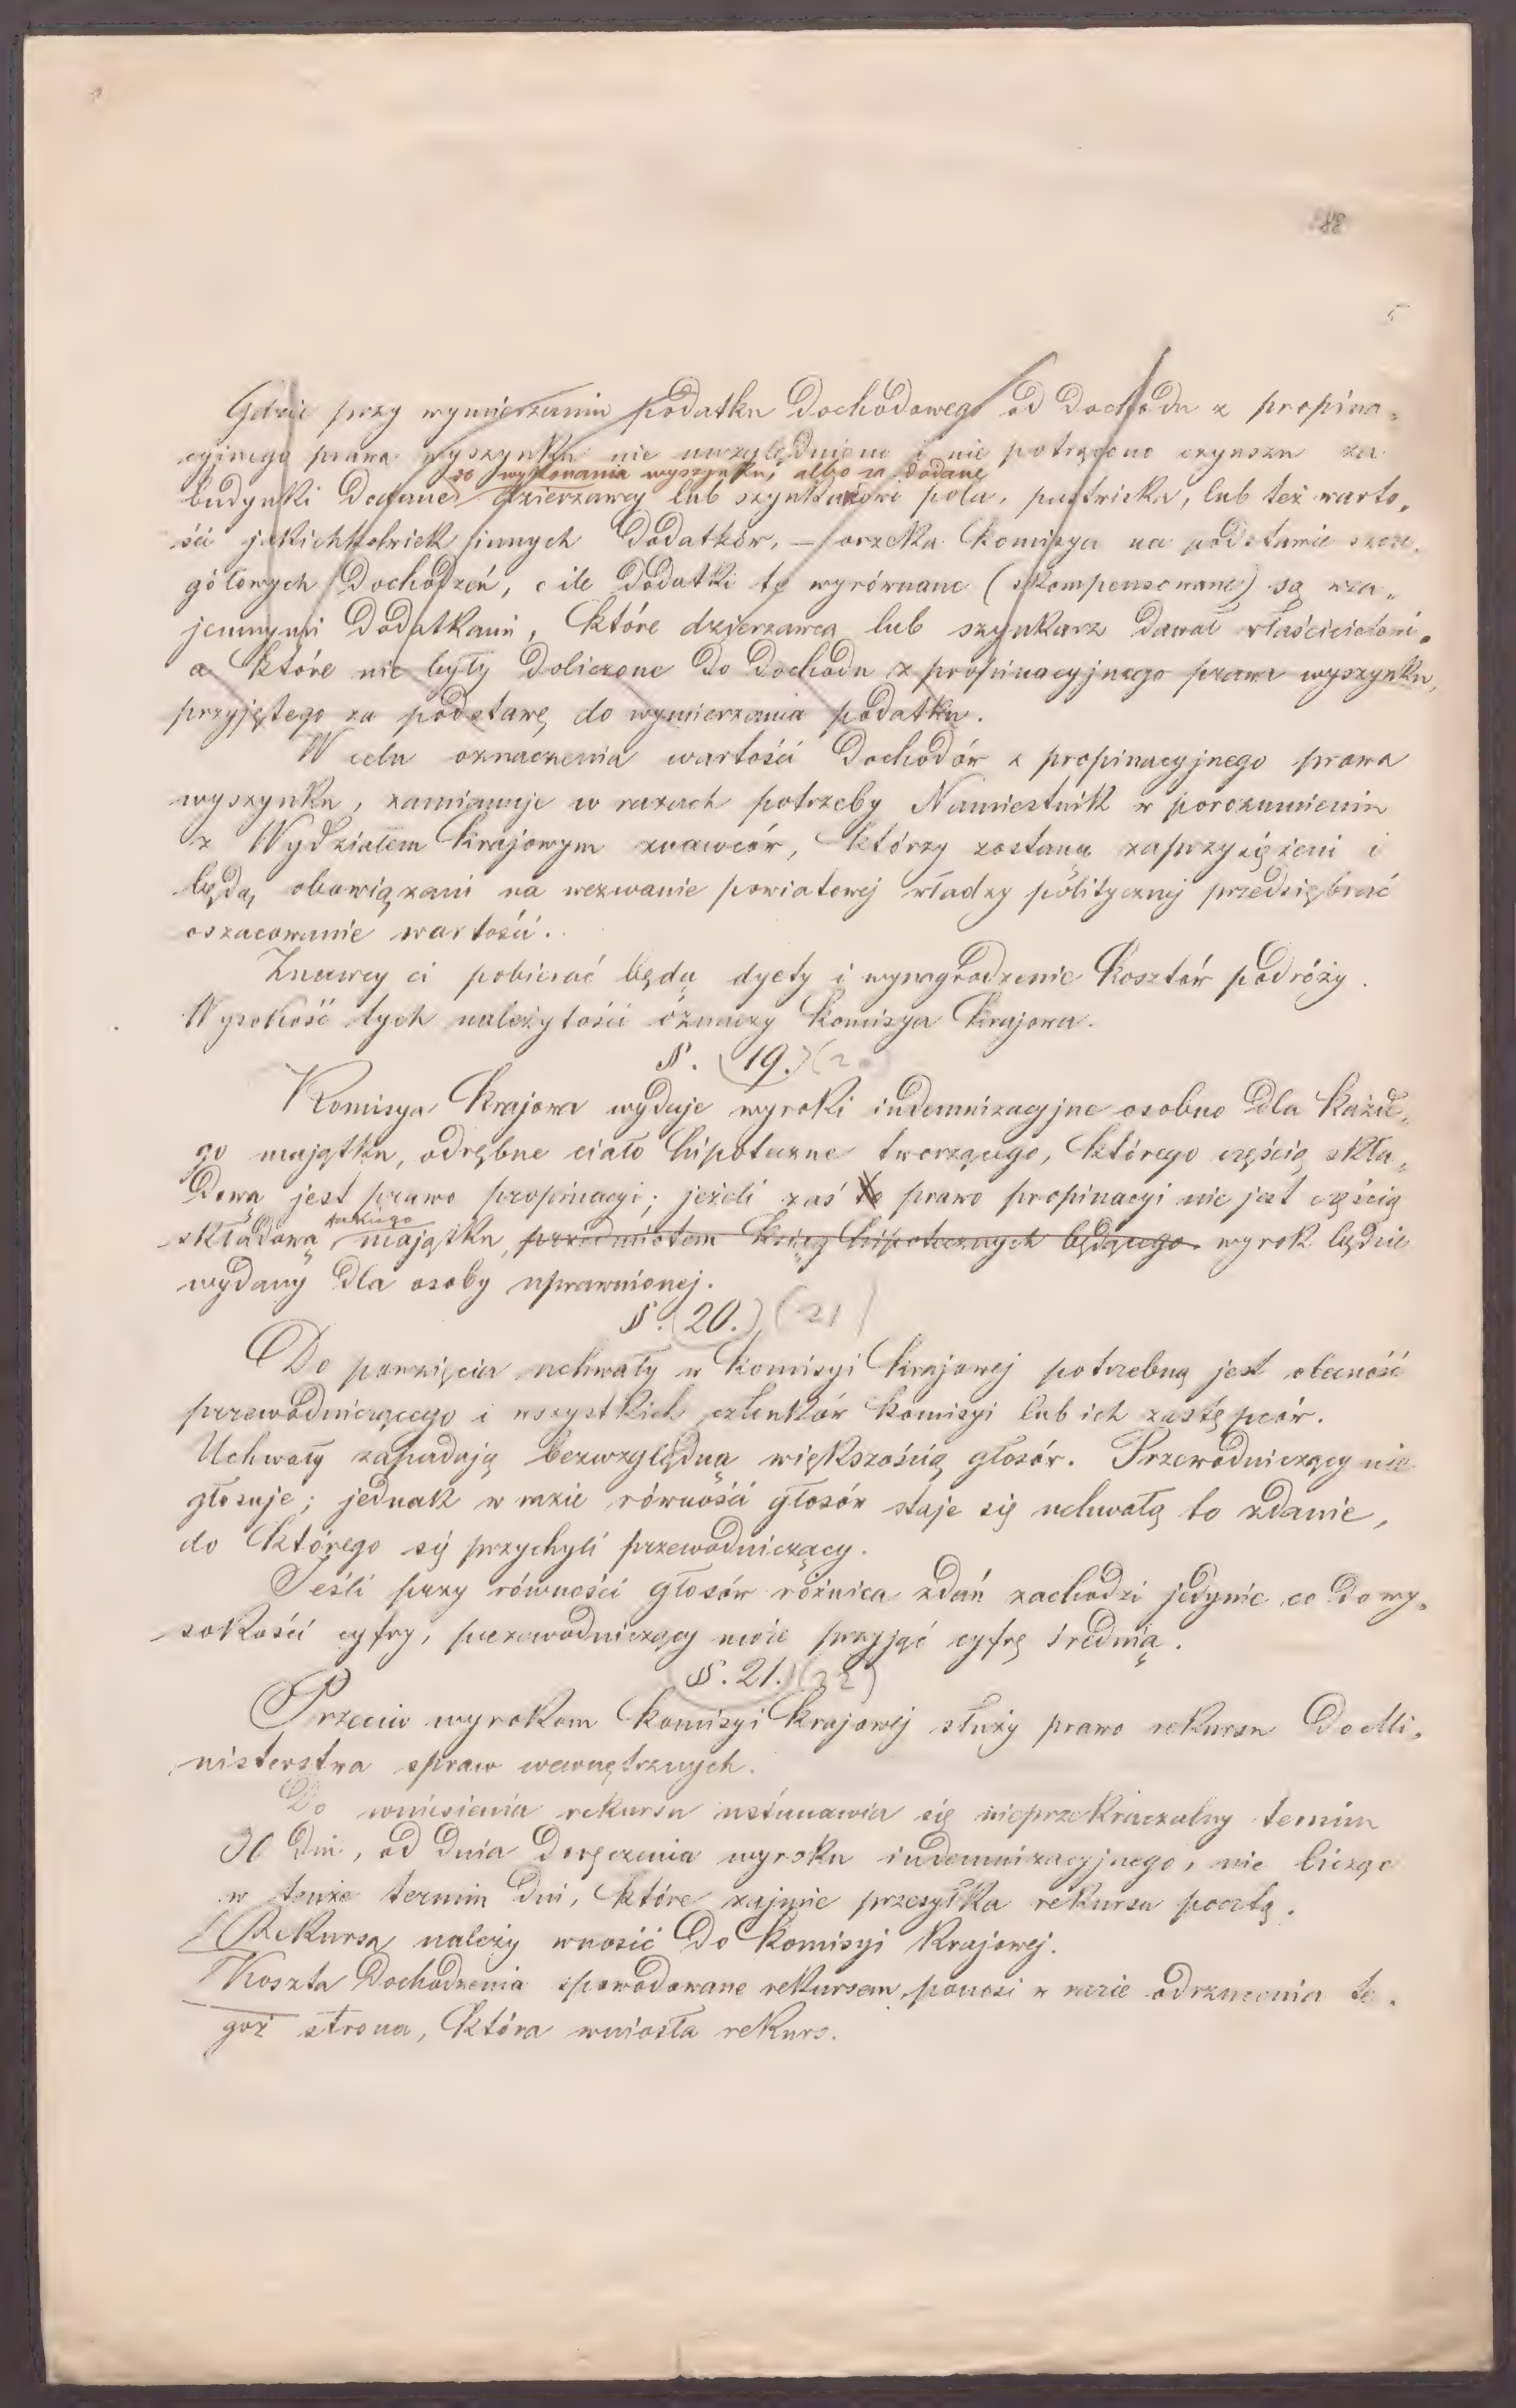 88
5
Gdzie przy wymierzaniu podatku dochodowego od dochodu z propina„
cyjnego prawa wyszynku nie uwzględniono i nie potrącono czynszu za
do wykonania wyszynku, albo za dodane
budynki dodane dzierzawcy lub szynkarzowi pola, pastwiska, lub też warto„
ści jakichkolwiek innych dodatków, — orzeka Komisya na podstawie szcze„
gółowych dochodzeń, o ile dodatki te wyrównane (skompensowane) są wza„
jemnymi dodatkami, które dzierzawca lub szynkarz dawał właścicielowi„
a które nie były doliczone do dochodu z propinacyjnego prawa wyszynku,
przyjętego za podstawę do wymierzania podatku.
W celu oznaczenia wartości dochodów z propinacyjnego prawa
wyszynku, zamianuje w razach potrzeby Namiestnik w porozumieniu
z Wydziałem krajowym znawców, którzy zostaną zaprzysiężeni i
będą obowiązani na wezwanie powiatowej władzy politycznej przedsiębrać
oszacowanie wartości.
Znawcy ci pobierać będą dyety i wynagrodzenie kosztów podróży.
Wysokość tych należytości oznaczy Komisya krajowa.
§. (19.) (2
Komisya krajowa wydaje wyroki indemnizacyjne osobno dla każde„
go majątku, odrębne ciało hipoteczne tworzącego, którego częścią skła„
dową jest prawo propinacyi; jeżeli zaś to prawo propinacyi nie jest częścią
takiego
składową majątku, przedmiotem ksiąg hipotecznych będącego, wyrok będzie
wydany dla osoby uprawnionej.
§. (20.) (21)
Do powzięcia uchwały w Komisyi krajowej potrzebną jest obecność
przewodniczącego i wszystkich członków Komisyi lub ich zastępców.
Uchwały zapadają bezwzględną większością głosów. Przewodniczący nie
głosuje; jednak w razie równości głosów staje się uchwałą to zdanie,
do którego się przychyli przewodniczący.
Jeśli przy równości głosów różnica zdań zachodzi jedynie co do wy„
sokości cyfry, przewodniczący może przyjąć cyfrę średnią.
§. 21.) (22)
Przeciw wyrokom Komisyi krajowej służy prawo rekursu do Mi„
nisterstwa spraw wewnętrznych.
Do wniesienia rekursu ustanawia się nieprzekraczalny termin
30 dni, od dnia doręczenia wyroku indemnizacyjnego, nie licząc
w tenże termin dni, które zajmie przesyłka rekursu pocztą.
Rekursa należy wnosić do Komisyi krajowej.
Koszta dochodzenia spowodowane rekursem, ponosi w razie odrzucenia te„
goż strona, która wniosła rekurs.